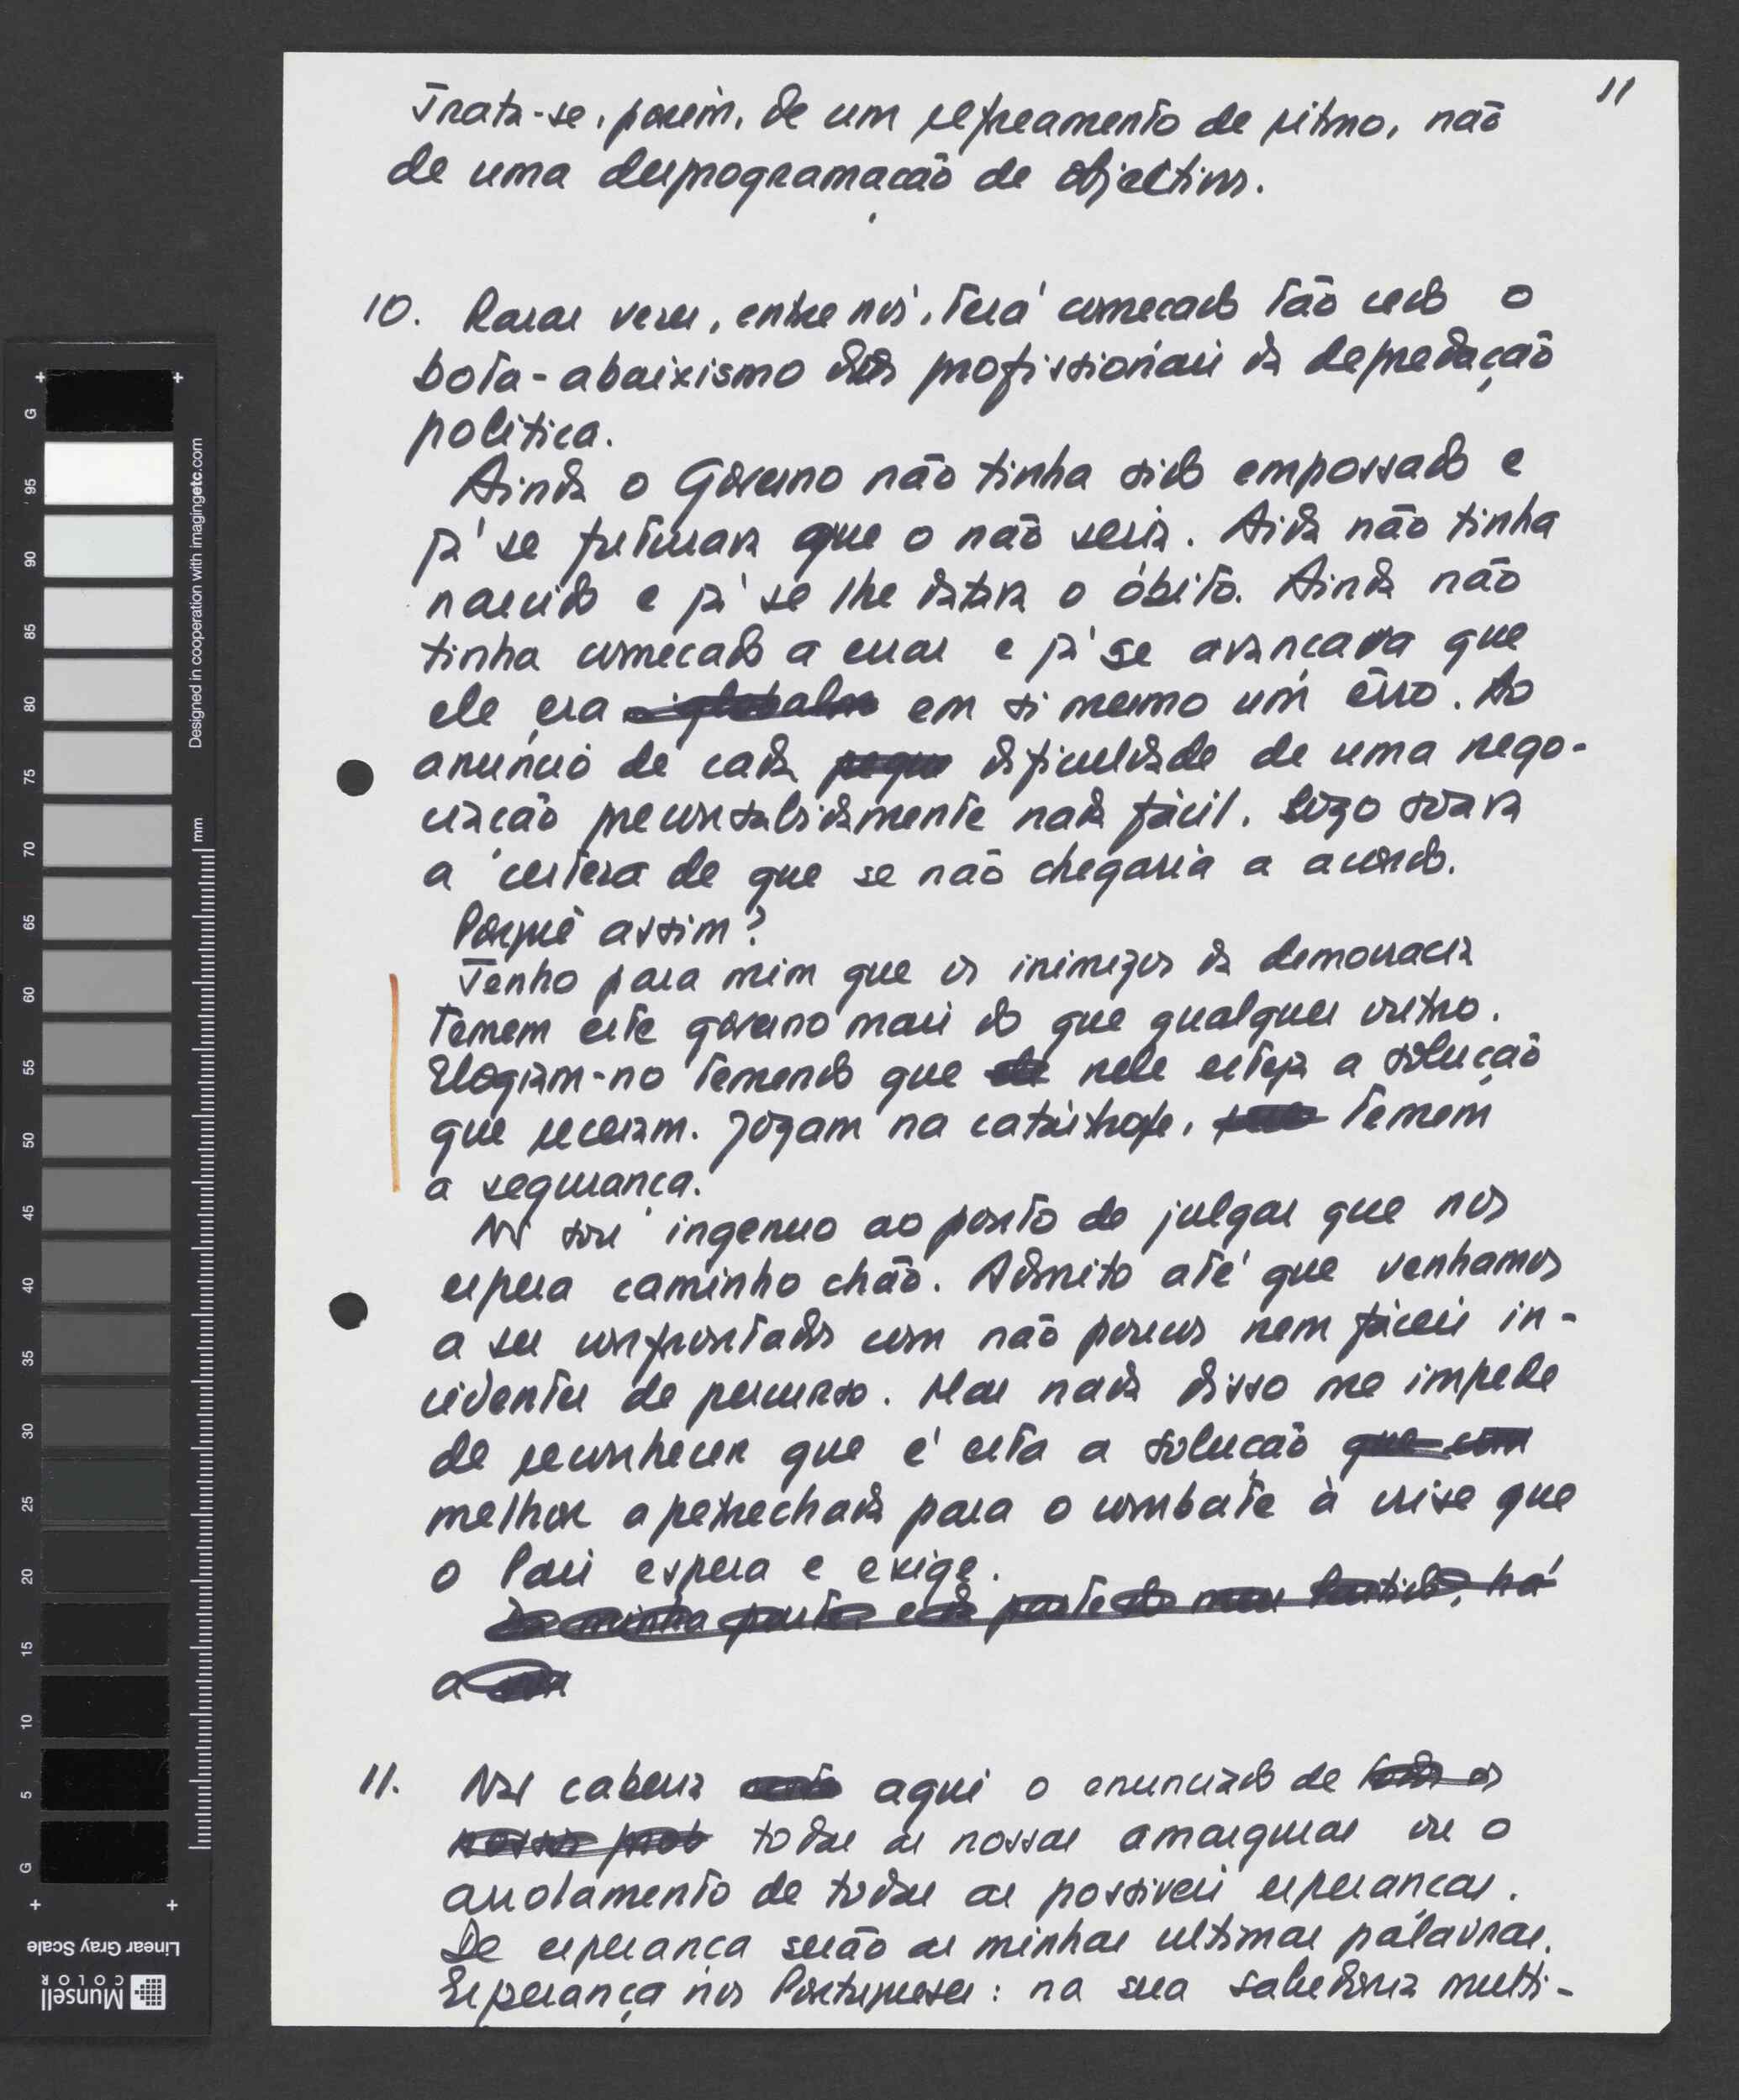 11
Trata-se, porém, de um refreamento de ritmo, não
de uma desprogramação de objectivos.
10. Raras vezes, entre nós, terá começado tão cedo o
bota-abaixismo dos profissionais da depredação
politica.
Ainda o Govêrno não tinha sido empossado e
já se futurava que o não seria. Aida não tinha
nascido e já se lhe datava o óbito. Ainda não
tinha começado a errar e já se avançava que
ele era em si mesmo um êrro. Ao
anúncio de cada dificuldade de uma nego-
ciação preconsabidamente nada fácil, logo soava
a certeza de que se não chegaria a acordo.
Porquê assim?
Tenho para mim que os inimigos da democracia
temem este govêrno mais do que qualquer outro.
Elogiam-no temendo que nele esteja a solução
que receiam. Jogam na catástrofe, temem
a segurança.
Não sou ingenuo ao ponto de julgar que nos
espera caminho chão. Admito até que venhamos
a ser confrontados com não poucos nem fáceis in-
cidentes de percurso. Mas nada disso me impede
de reconhecer que é esta a solução que com
melhor apetrechada para o combate à crise que
o País espera e exige.
Da minha parte, e da parte do meu Partido, há
a
11. Não caberia aqui o enunciado de todos os
nossos prob todas as nossas amarguras ou o
arrolamento de todas as possiveis esperanças.
De esperança serão as minhas ultimas palavras.
Esperança nos Portugueses: na sua sabedoria multi-
95
90
85
80
75
70
65
60
55
50
45
40
35
30
25
20
15
10
5
G
G
mm
Designed in cooperation with imagingetc.com
Linear Gray Scale
Munsell
COLOR